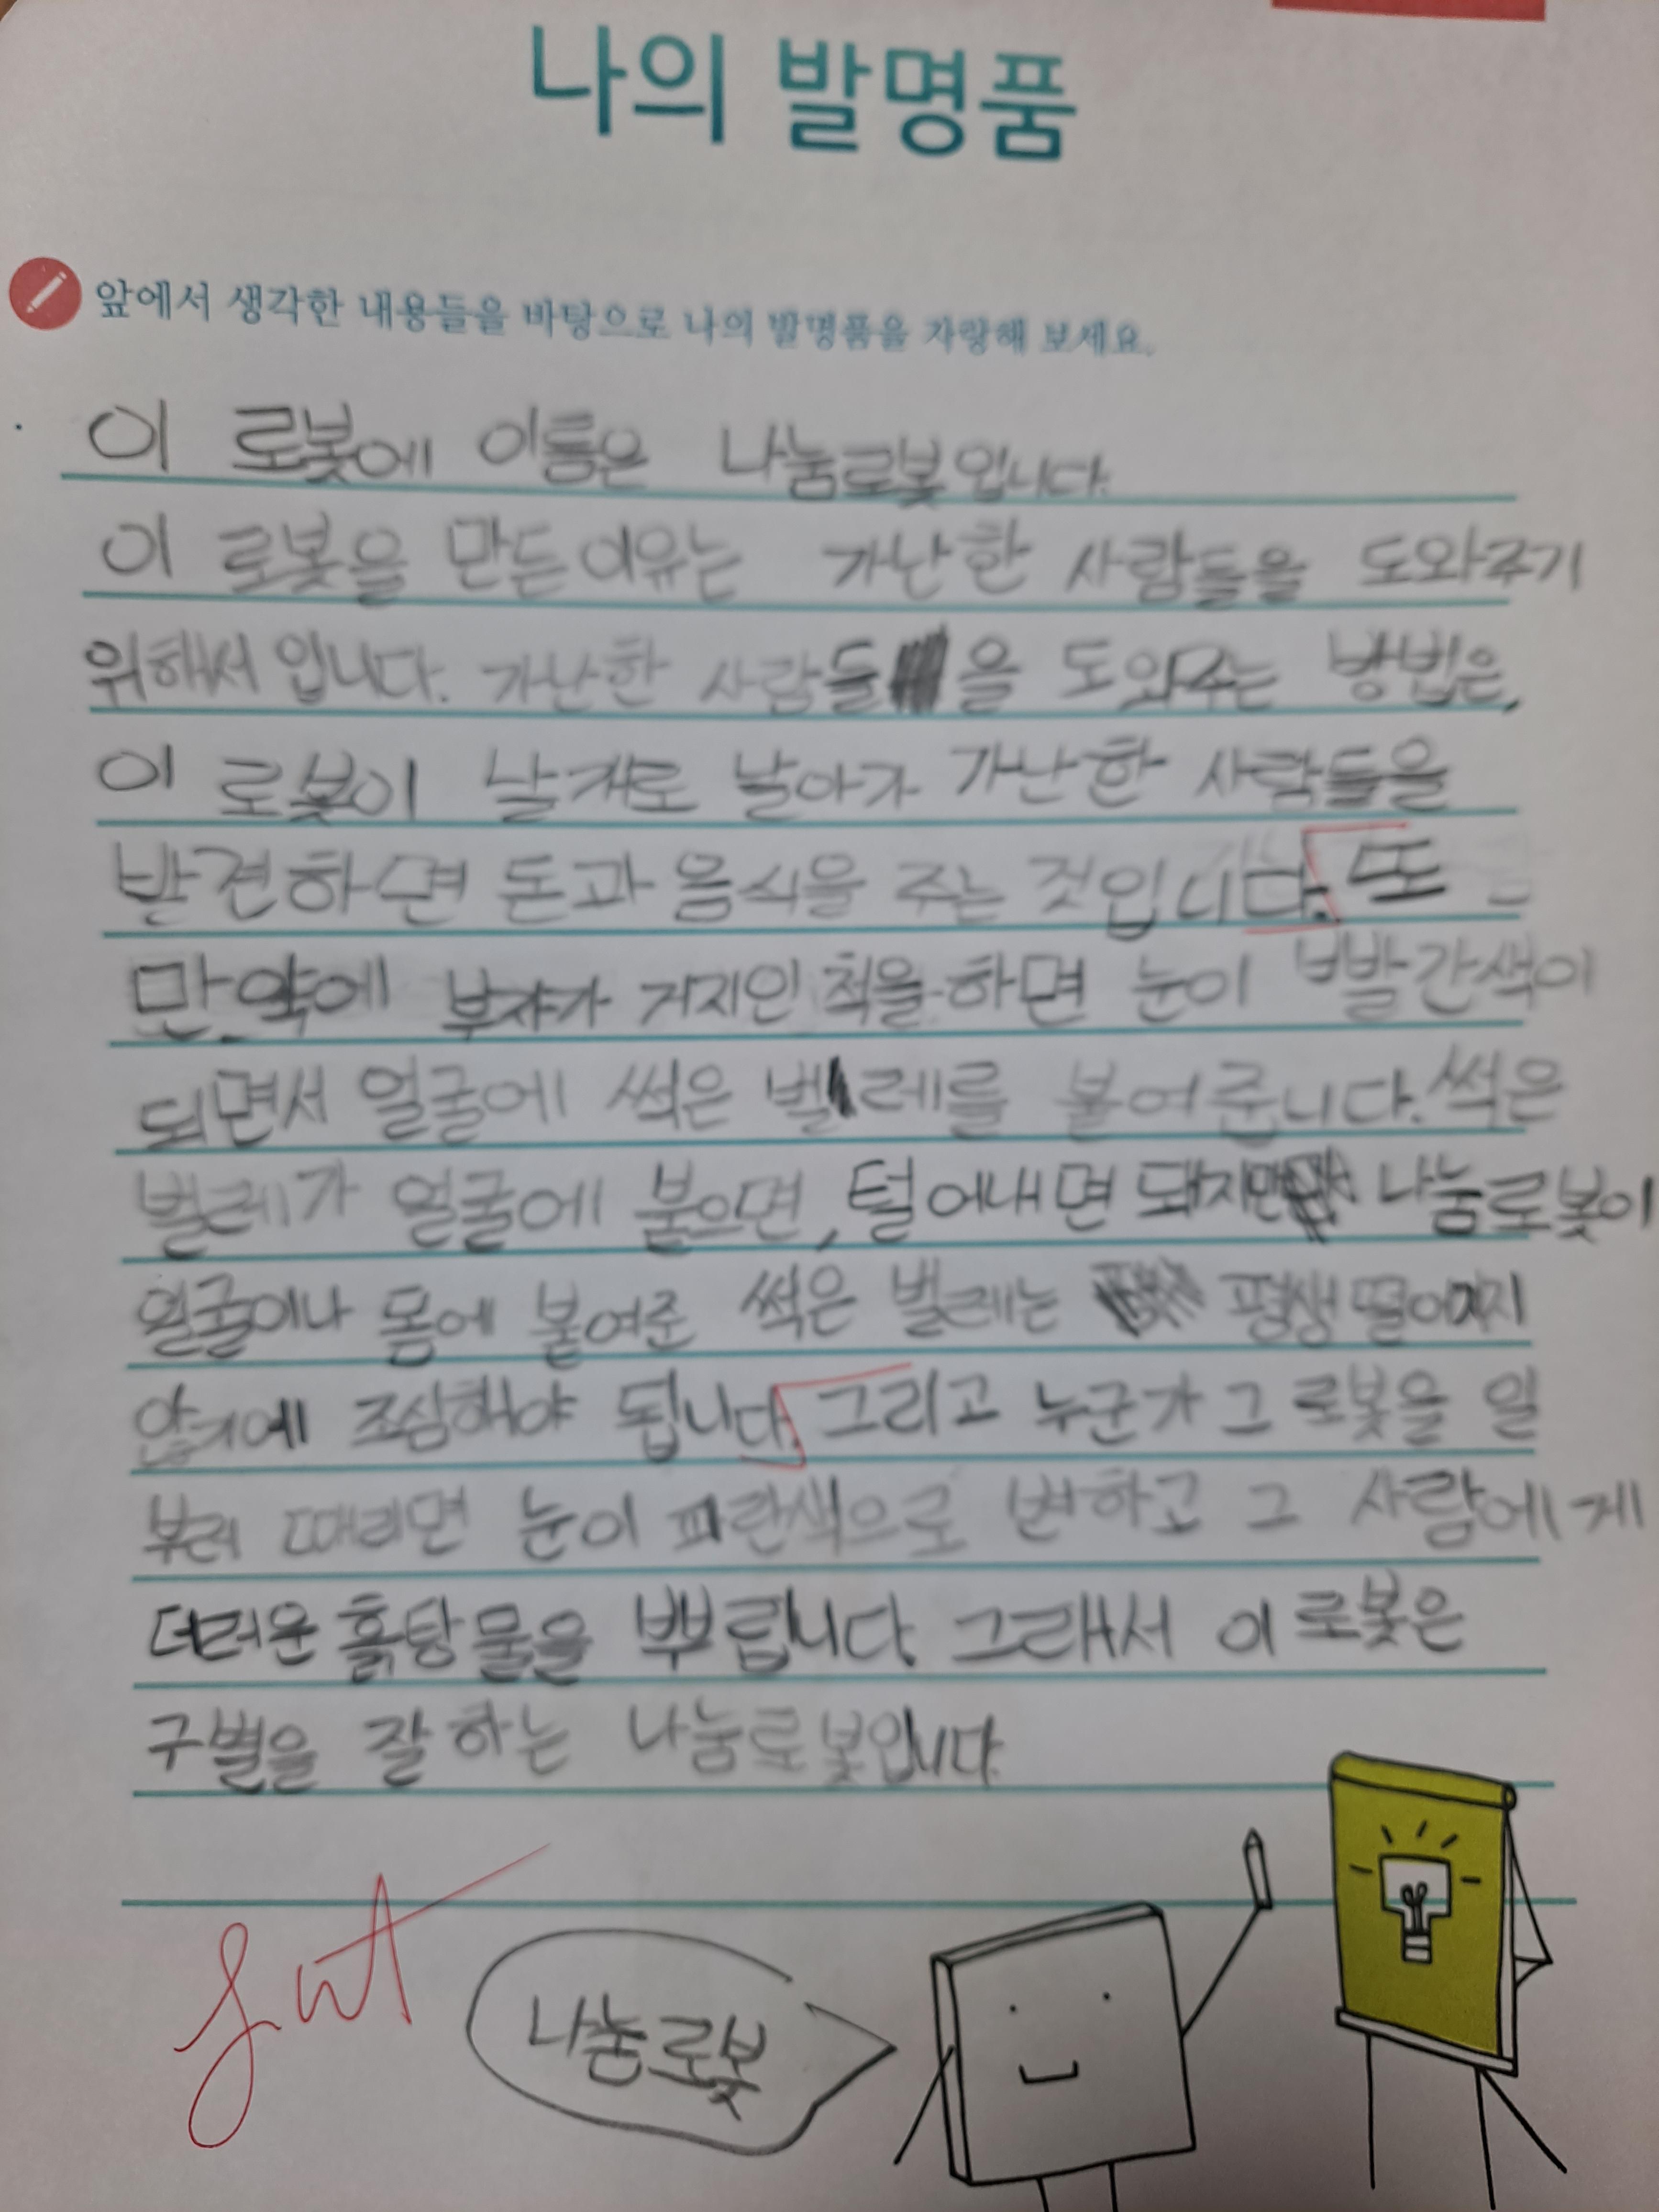 나의 발명품
앞에서 생각한 내용들을 바탕으로 나의 발명품을 자랑해 보세요.
이 로봇에 이름은 나눔로봇입니다.
이 로봇을 만든이유는 가난한 사람들을 도와주기
위해서 입니다. 가난한 사람들을 도와주는 방법은,
이 로봇이 날개로 날아가 가난한 사람들을
발견하면 돈과 음식을 주는 것입니다. 또
만약에 부자가 거지인 척을 하면 눈이 빨간색이
되면서 얼굴에 썩은 벌레를 붙여줍니다. 썩은
벌레가 얼굴에 붙으면, 털어내면 돼지만 나눔로봇이
얼굴이나 몸에 붙여준 썩은 벌레는 평생 떨어지지
않기에 조심해야 됩니다. 그리고 누군가 그 로봇을 일
부러 때리면 눈이 파란색으로 변하고 그 사람에게
더러운 흙탕물을 뿌립니다. 그래서 이 로봇은
구별을 잘 하는 나눔로봇입니다
나눔로봇